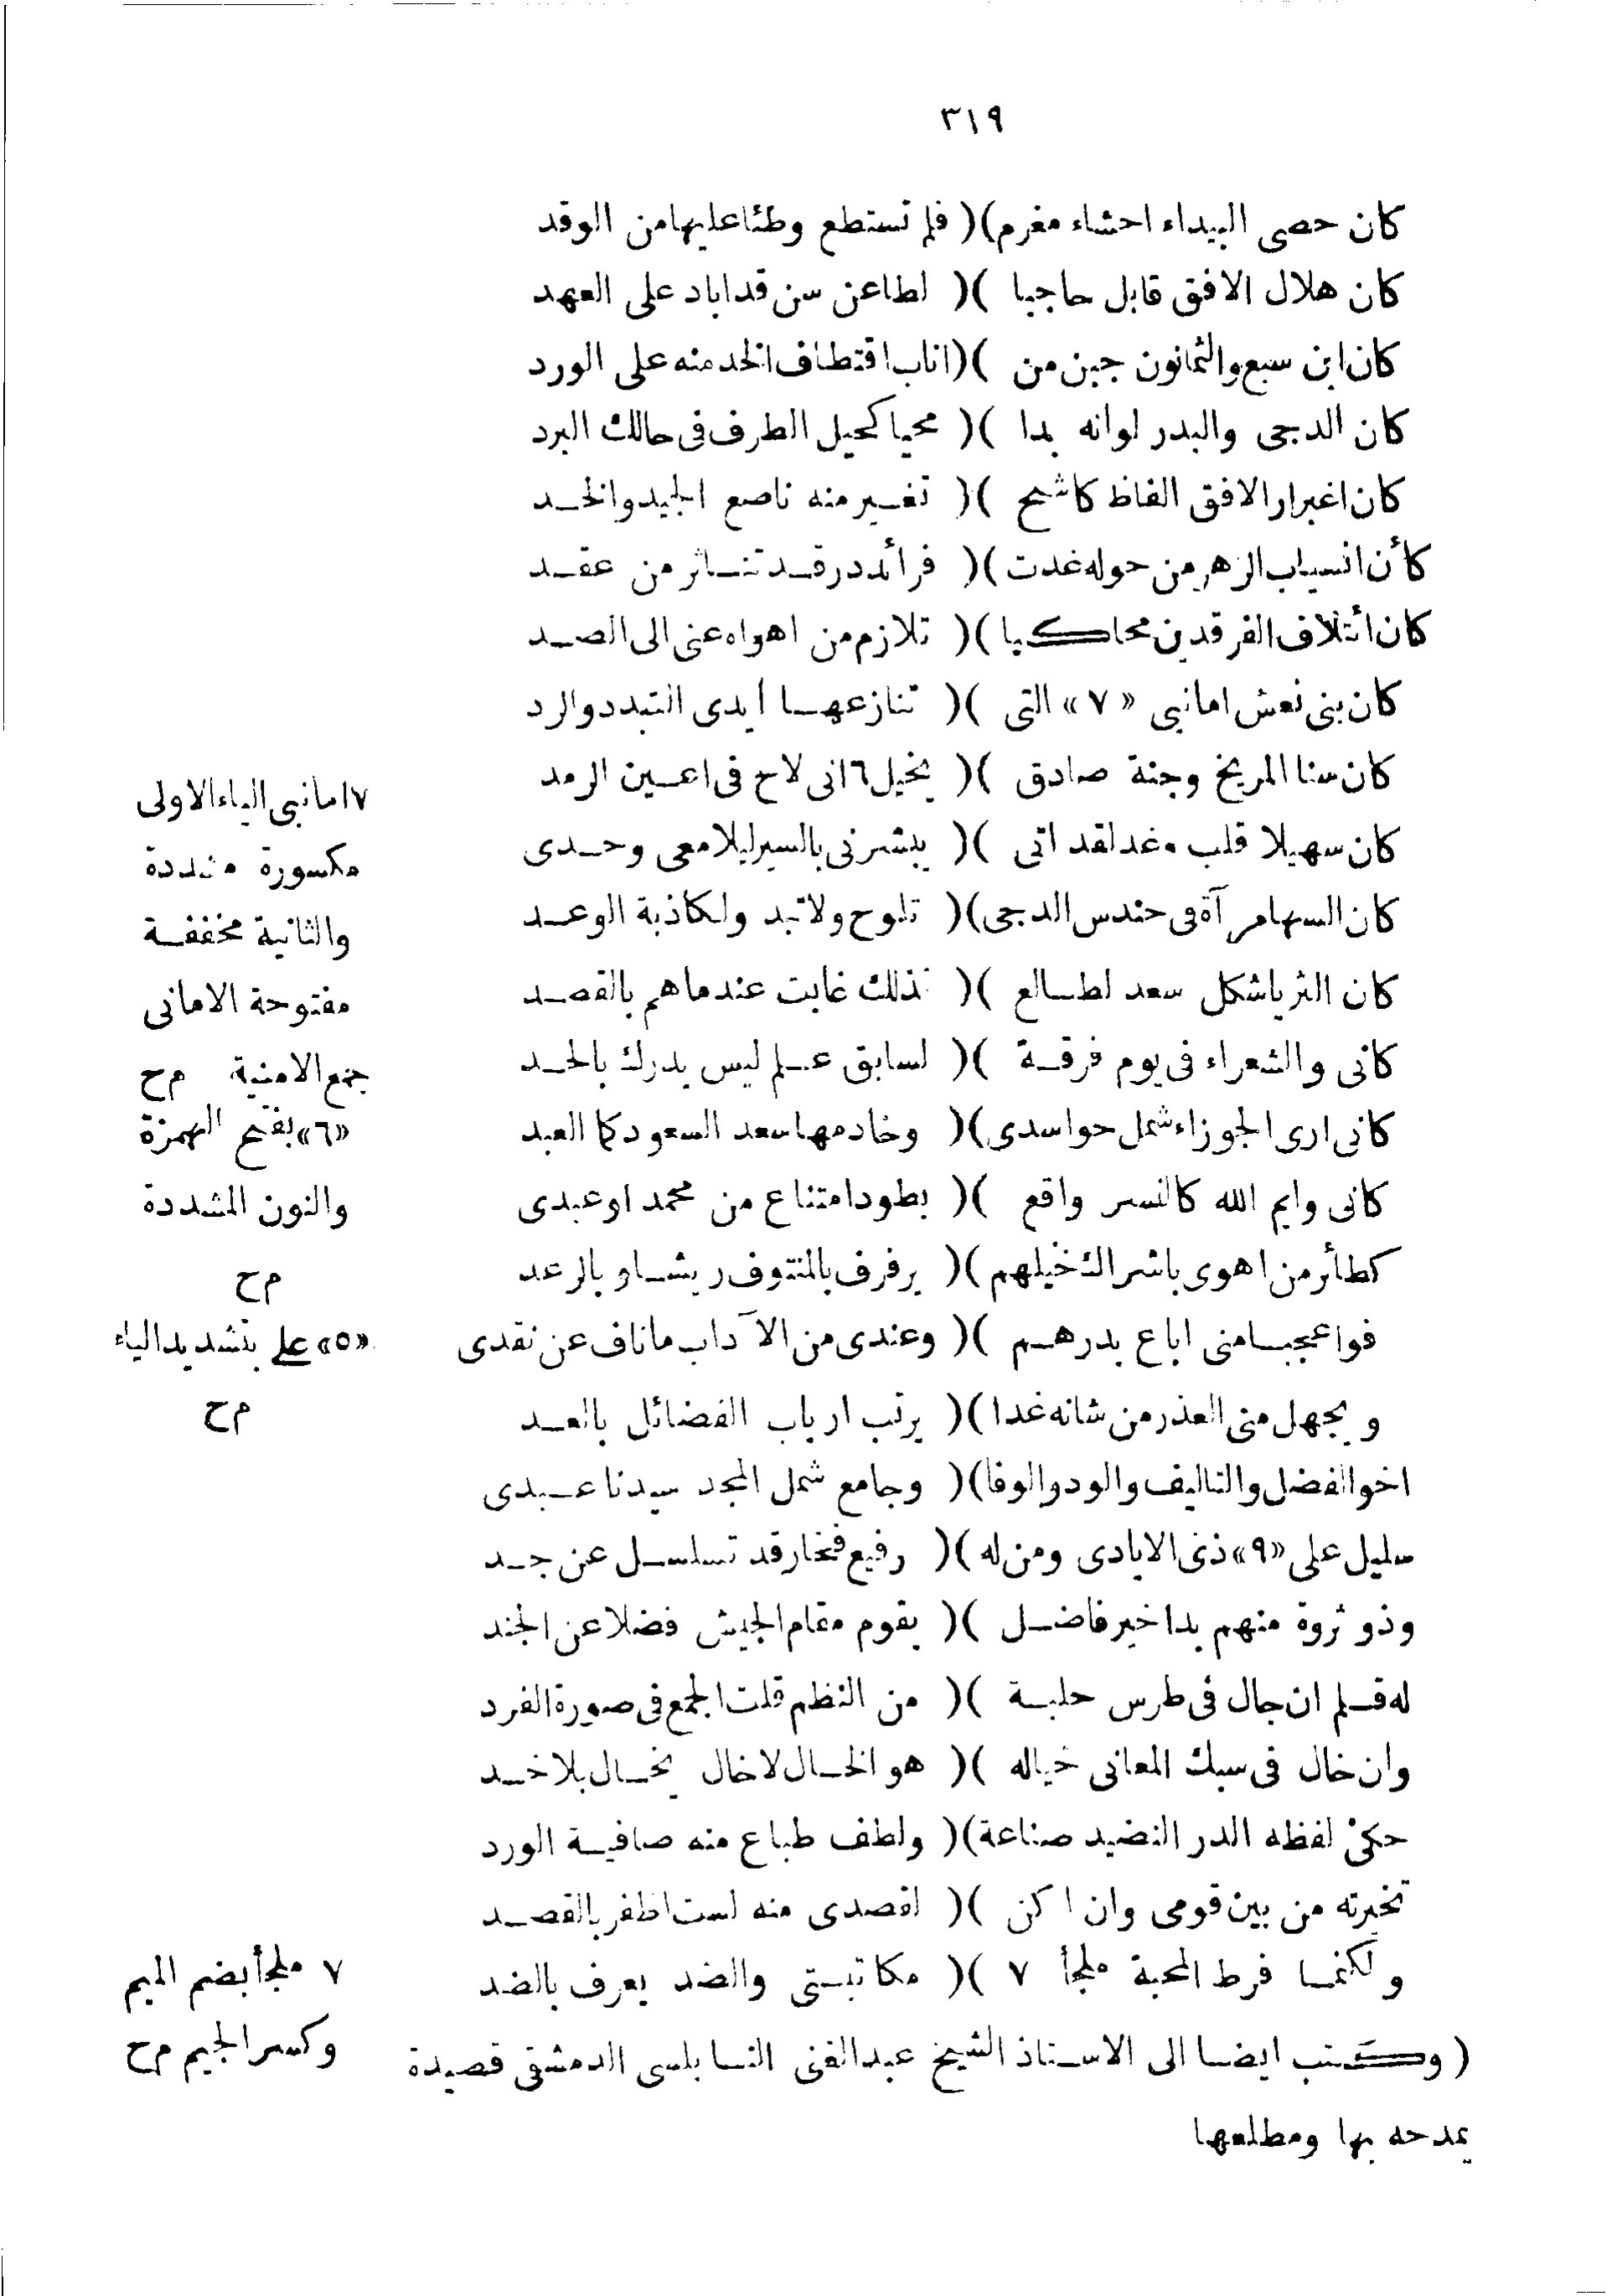 ٣١٩
كان حصى البيداء احشاء مغرم)( فلم تستطع وطئا عليها من الوقد
كان هلال الافق قابل حاجبا )( لطاعن سن قد اباد على العهد
كان ابن سبع والثمانون جبن من )( اناب اقتطاف الخد منه على الورد
كان الدجى والبدر لوانه بدا )( محيا كحيل الطرف فى حالك البرد
كان اغبرار الافق الفاظ كاشح )( تغير منه ناصع الجيد والخد
كأن انسياب الزهر من حوله غدت )( فرائد در قد تناثر من عقد
كان أئتلاف الفرقدين محاكيا )( تلازم من اهواه عنى الى الصد
كان بنى نعش امانيي «٧» التى )( تنازعها أيدى التبدد والرد
كان سنا المريخ وجنة صادق )( يخيل ٦ انى لاح فى اعين الرمد
كان سهيلا قلب مغد لقد اتى )( يبشرنى بالسير ليلا معى وحدى
كان السها مرآة فى حندس الدجى)( تلوح ولا تبدو لكاذبة الوعد
كان الثريا شكل سعد لطالع )( لذلك غابت عندما هم بالقصد
كانى والشعراء فى يوم فرقة )( لسابق علم ليس يدرك بالحد
كانى ارى الجوزاء شمل حواسدى)( وخادمها سعد السعود كما العبد
كانى وايم الله كالنسر واقع )( بطود امتناع من محمد او عبدى
كطائر من اهوى باشراك خيلهم)( يرفرف بالمنتوف ريشا وبالرعد
فواعجبا منى اباع بدرهم )( وعندى من الآداب ما ناف عن نقدى
ويجهل منى العذر من شانه غدا)( يرتب ارباب الفضائل بالعد
اخو الفضل والتاليف والود والوفا)( وجامع شمل المجد سيدنا عبدى
سليل على «٩» ذى الايادى ومن له )( رفيع فخار قد تسلسل عن جد
وذو ثروة منهم بدا خير فاضل )( يقوم مقام الجيش فضلا عن الجند
له قلم ان جال فى طرس حلبة )( من النظم قلت الجمع فى صورة الفرد
وان خال فى سبك المعانى خياله )( هو الخال لا خال يخال بلا خد
حكى لفظه الدر النضيد صناعة)( ولطف طباع منه صافية الورد
تخيرته من بين قومى وان اكن )( لقصدى منه لست اظفر بالقصد
ولكنما فرط المحبة ملجأ ٧ )( مكاتبتى والضد يعرف بالضد
( وكتب ايضا الى الاستاذ الشيخ عبد الغنى النابلسى الدمشقى قصيدة
يمدحه بها ومطلعها
٧ امانيي الياء الاولى
مكسورة مشددة
والثانية مخففة
مفتوحة الامانى
جمع الامنية م ح
«٦» بفتح الهمزة
والنون المشددة
م ح
«٥» على بتشديد الياء
م ح
٧ ملجأ بضم الميم
وكسر الجيم م ح